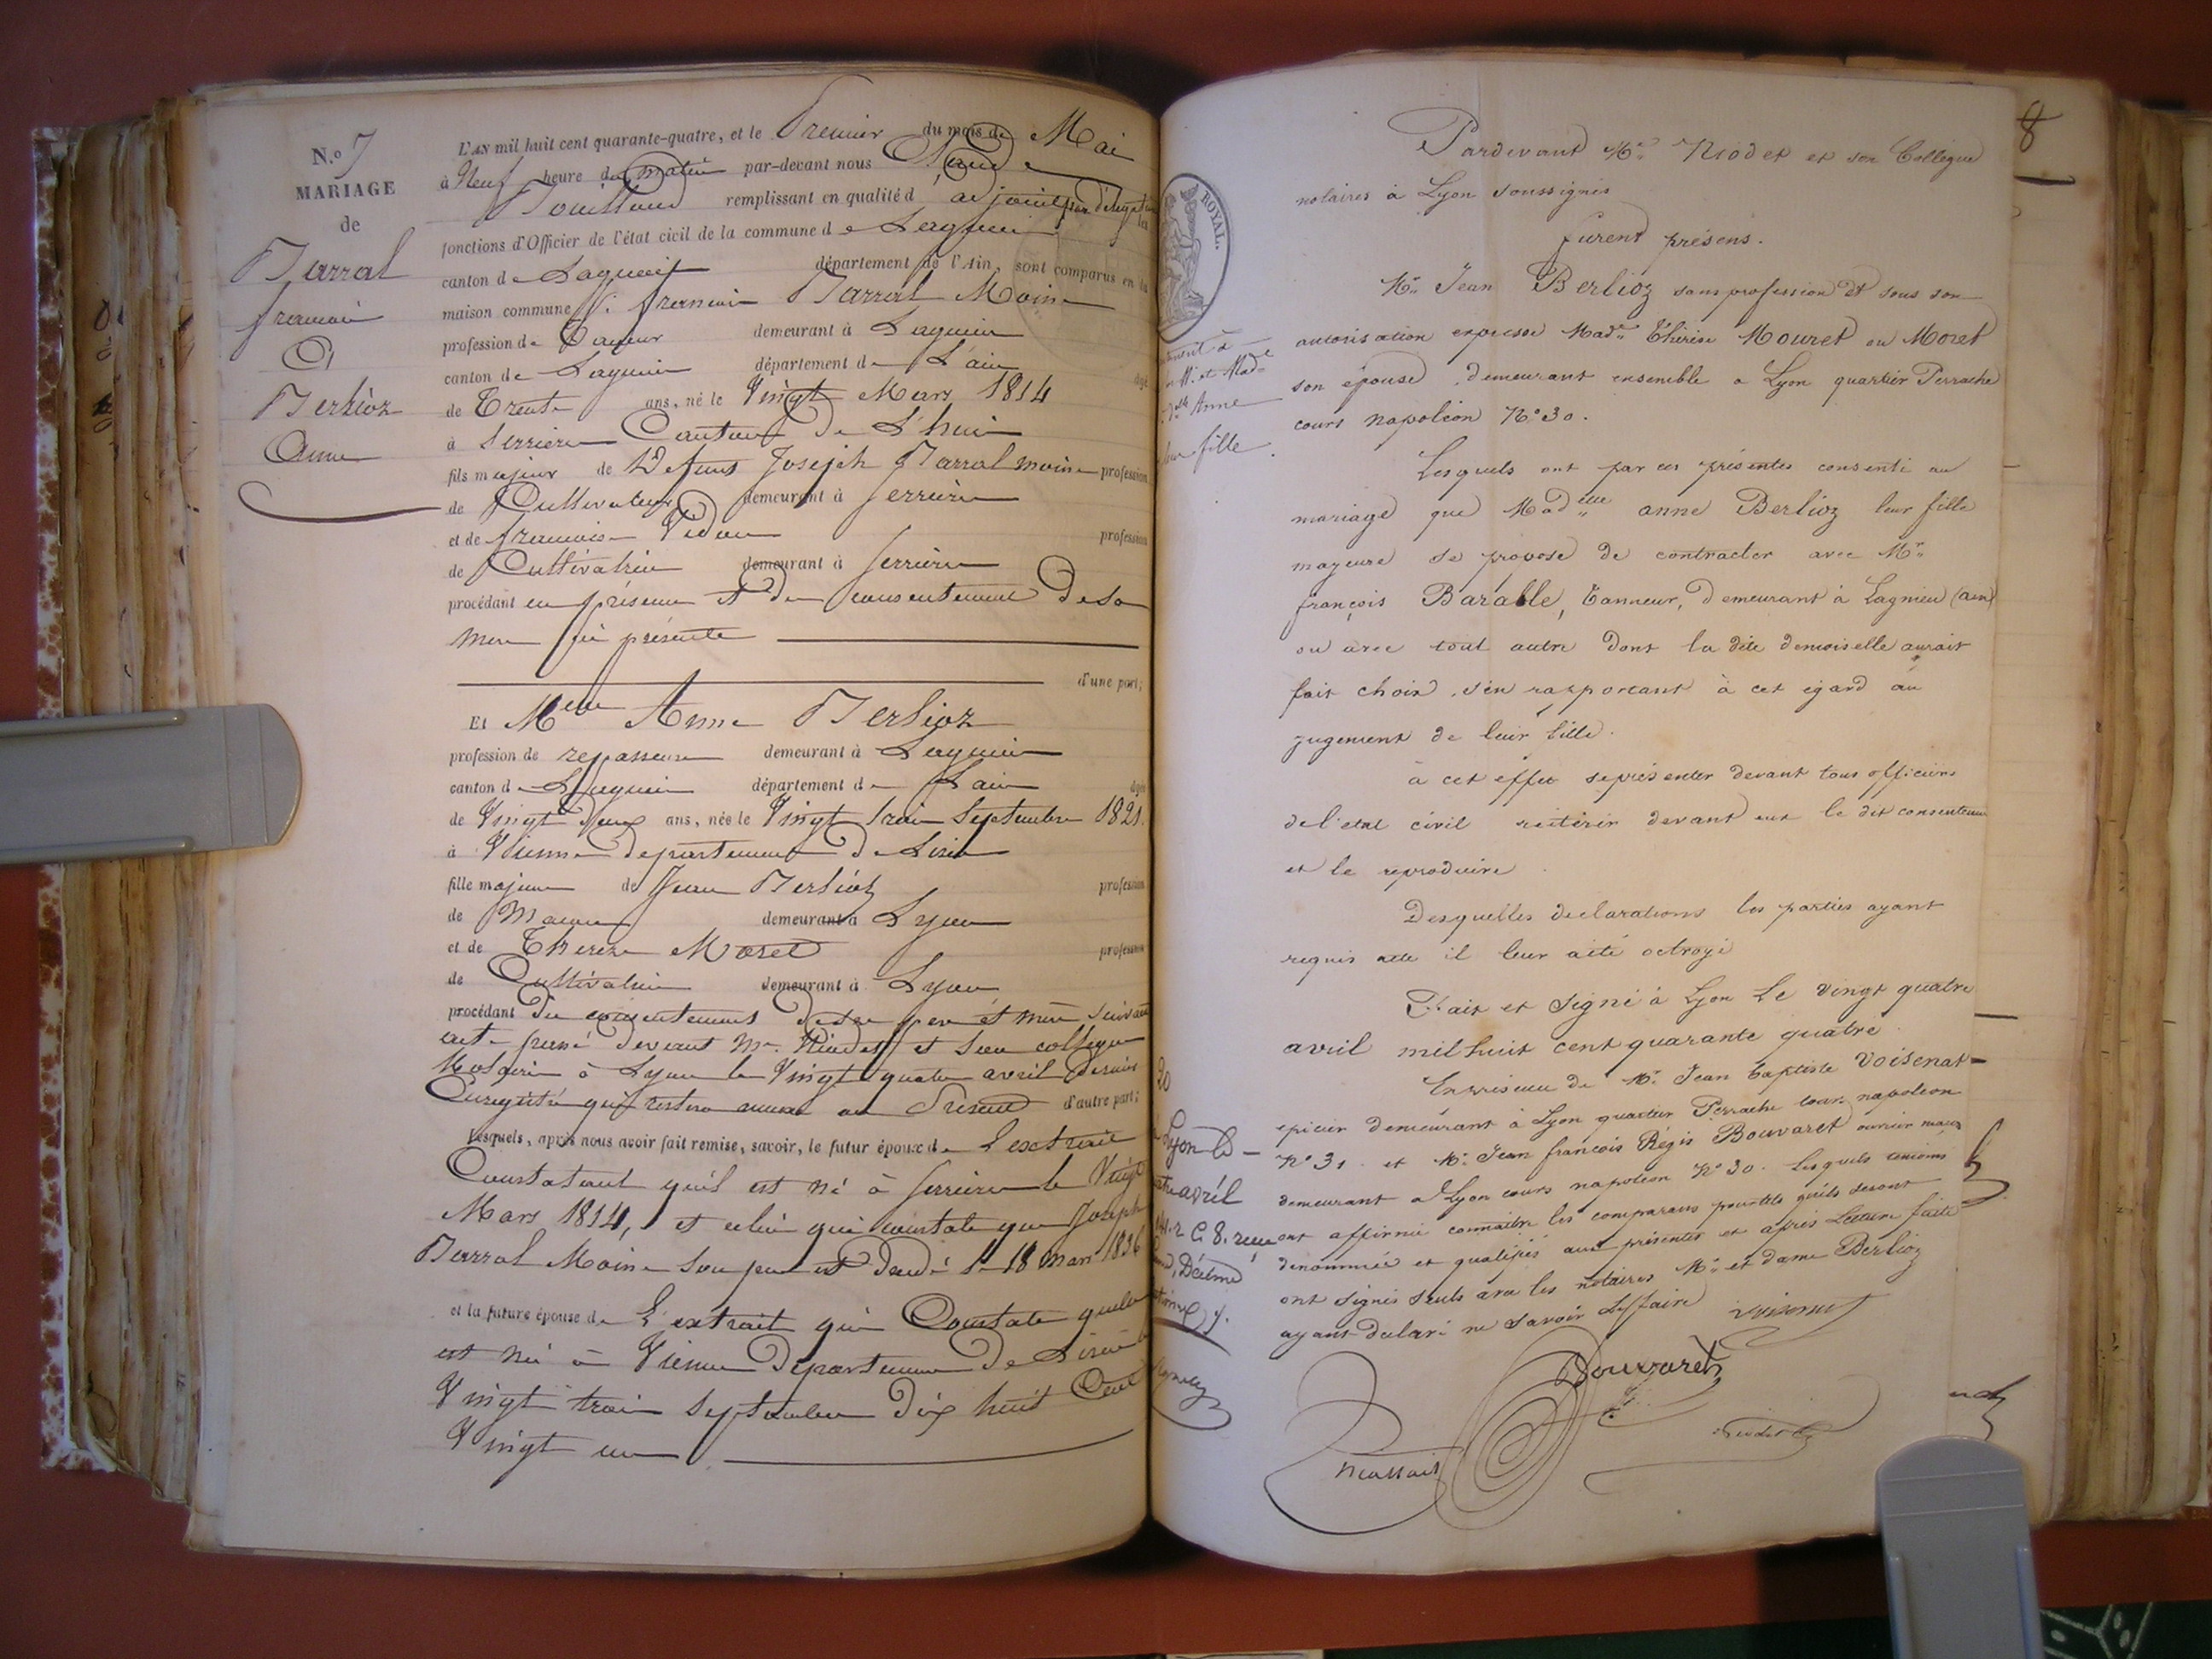 N.o 7
MARIAGE
de
Barral
françois
Et
Berlioz
Anne
L'AN mil huit cent quarante-quatre, et le Premier du mois de Mai
à Neuf heure du matin par-devant nous Claude
remplissant en qualité d'adjoint par délégation les
fonctions d'Officier de l'état civil de la commune de Lagnieu
canton de Lagnieu département de l'Ain, sont comparus en la
maison commune Sr. francois Barral Moine
profession de Tanneur demeurant à Lagnieu
canton de Lagnieu département de L'ain âgé
de Trente ans, né le Vingt Mars 1814
à Serriere Canton de L'huis
fils majeur de Defunt Joseph Barral moine profession
de Cultivateur demeurant à Serriere
et de francoise profession
de Cultivatrice demeurant à Serriere
procédant en présence et du consentement de sa
mere ici présente
d'une part;
Et Melle Anne Berlioz
profession de repasseuse demeurant à Lagnieu
canton de Lagnieu département de Lain âgée
de Vingt deux ans, née le Vingt trois Septembre 1821
à Vienne departement de Lisère
fille majeure de Jean Berlioz profession
de Macon demeurant à Lyon
et de Thereze Moret profession
de Cultivatrice demeurant à Lyon
procédant du consentement de ses pere et mere suivant
acte passé devant Me. Niodet et son collegue
Notaire à Lyon le Vingt quatre avril dernier
Enregistré qui restera annexé au Présent d'autre part;
Lesquels, après nous avoir fait remise, savoir, le futur époux de L'extrait
Constatant qu'il est né à Serriere le Vingt
Mars 1814, et celui qui constate que Joseph
Barral Moine son pere est décédé le 18 mars 1836
et la future épouse de L'extrait qui Constate quelle
est née à Vienne Departement de Lisère le
Vingt trois septembre dix huit Cent
Vingt un
8
ROYAL.
Mr. et Made
Delle Anne
leur fille.
Pardevant Me. Niodet et son Collegue
notaires à Lyon soussignés
furent présens.
Mr. Jean Berlioz sans profession et sous son
autorisation expresse Made. Thérèse Mouret ou Moret
son épouse, demeurant ensemble a Lyon quartier Perrache
cours napoléon No. 30.
Lesquels ont par ces présentes consenti au
mariage que Madelle anne Berlioz leur fille
majeure se propose de contracter avec Mr.
françois Barable, Tanneur, demeurant à Lagnieu (ain)
ou avec tout autre dont la dite demoiselle aurait
fait choix, s'en rapportant à cet égard au
jugement de leur fille.
à cet effet se présenter devant tous officiers
de l'etat civil reiterer devant eux le dit consentement
et le reproduire
Desquelles declarations les parties ayant
requis acte il leur a été octroyé
Fait et signé à Lyon Le vingt quatre
avril mil huit cent quarante quatre
En présence de Mr. Jean baptiste Voisenat
epicier demeurant à Lyon quartier Perrache cours napoleon
No. 31. et Mr. Jean françois Régis Bouvaret ouvrier maçon
demeurant a Lyon cours napoleon No. 30. Lesquels temoins
ont affirmé connaitre les comparans pour tels qu'ils se sont
dénommés et qualifiés aux présentes et après Lecture faite
ont signés seuls avec les notaires Mr. et dame Berlioz
ayant déclaré ne savoir Le faire
20
Lyon le
avril
C. 8.
Décime
Bouvaret
Niodet